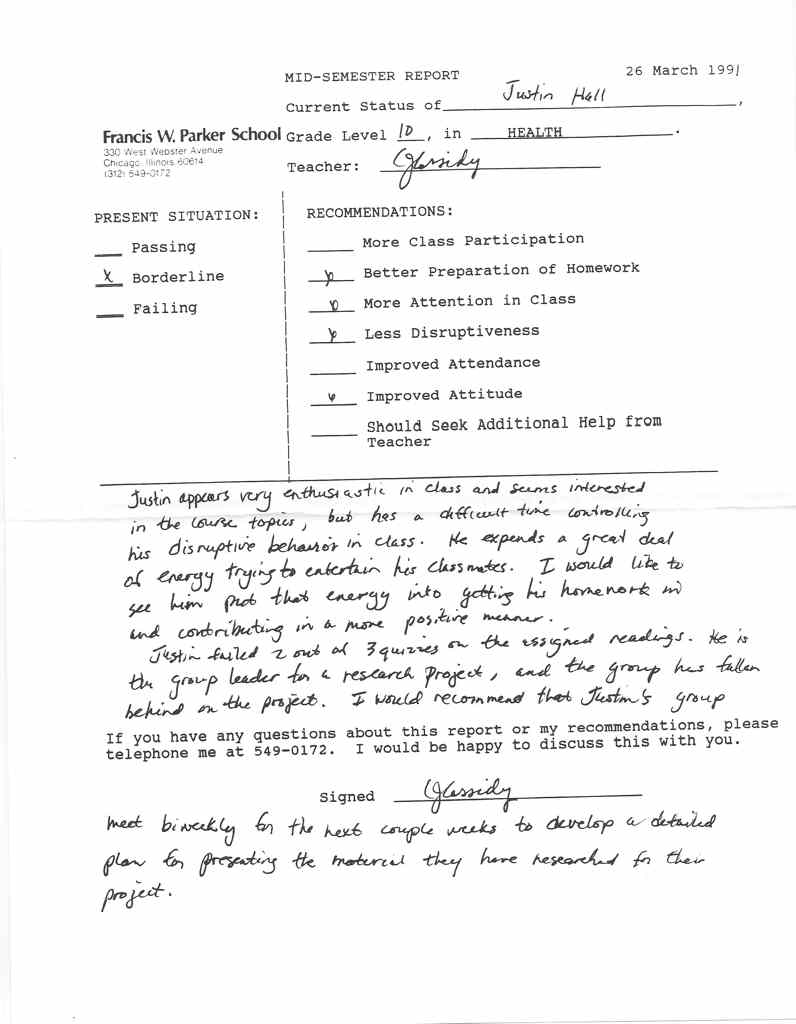 MID-SEMESTER REPORT 26 March 1991
Current Status of Justin Hall,
Francis W. Parker School
330 West Webster Avenue
Chicago, Illinois 60614
(312) 549-0172
Grade Level 10, in HEALTH.
Teacher: JCassidy
PRESENT SITUATION:
Passing
X Borderline
Failing
RECOMMENDATIONS:
More Class Participation
Better Preparation of Homework
More Attention in Class
Less Disruptiveness
Improved Attendance
Improved Attitude
Should Seek Additional Help from
Teacher
Justin appears very enthusiastic in class and seems interested
in the course topics, but has a difficult time controlling
his disruptive behavior in class. He expends a great deal
of energy trying to entertain his classmates. I would like to
see him put that energy into getting his homework in
and contributing in a more positive manner.
Justin failed 2 out of 3 quizzes on the assigned readings. He is
the group leader for a research project, and the group has fallen
behind on the project. I would recommend that Justin's group
If you have any questions about this report or my recommendations, please
telephone me at 549-0172. I would be happy to discuss this with you.
Signed JCassidy
meet biweekly for the next couple weeks to develop a detailed
plan for presenting the material they have researched for their
project.